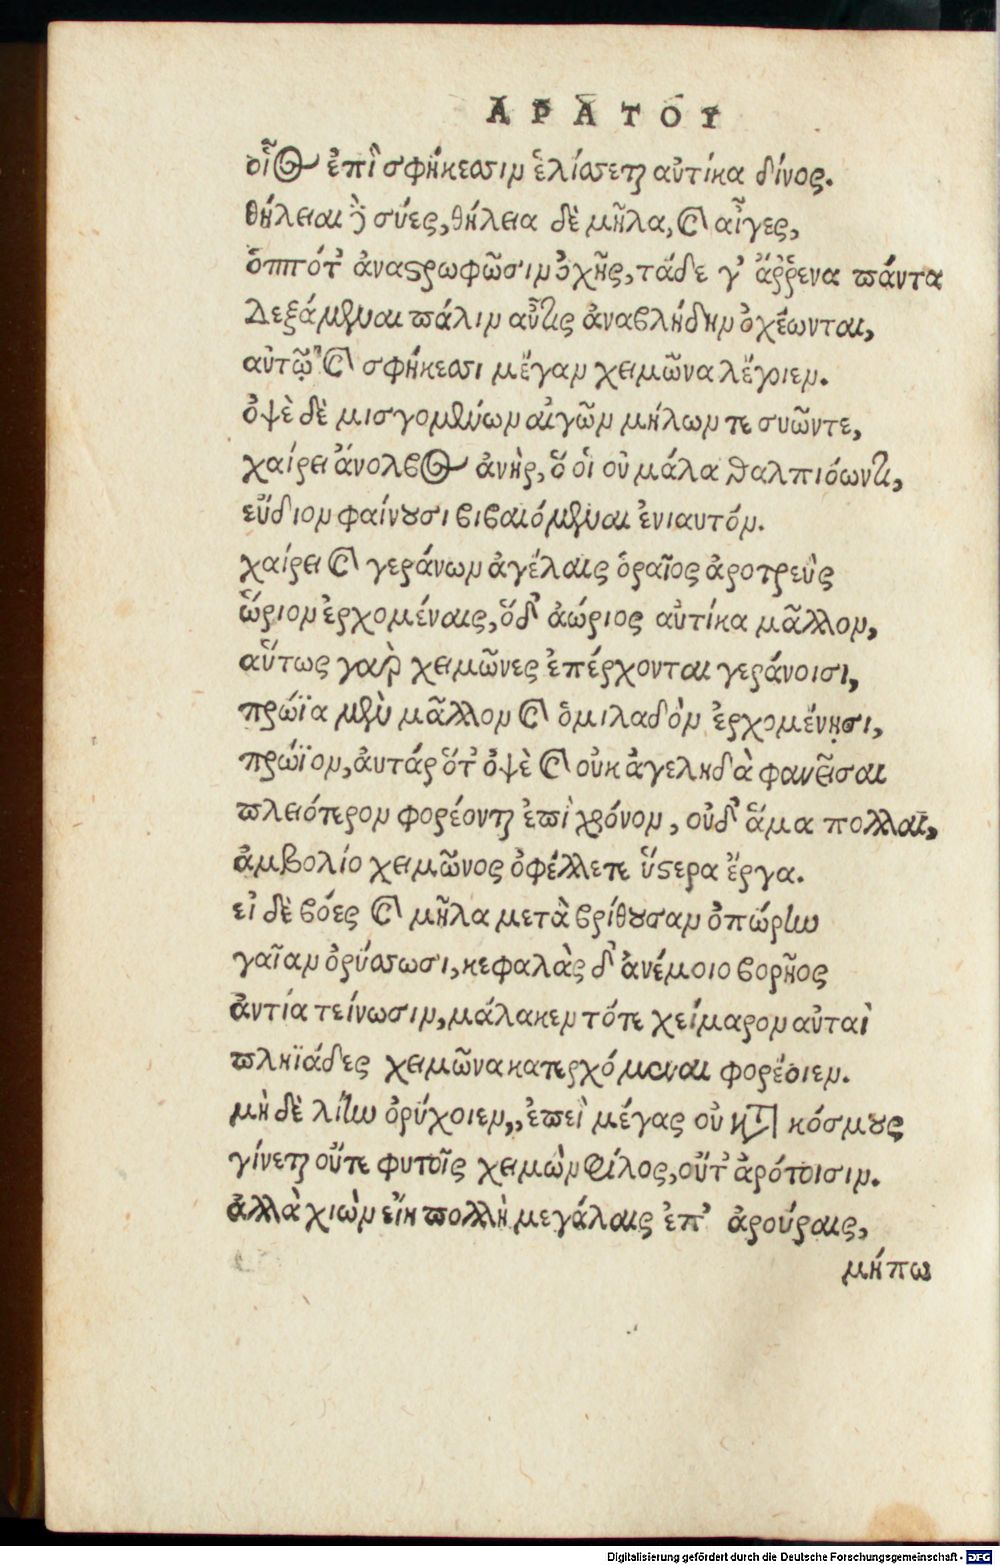 ΑΡΑΤΟΥ
οἷος ἐπὶ σφήκεσσιν ἑλίσσεται αὐτίκα δίνος.
θήλειαι δὲ σύες, θήλεια δὲ μῆλα, καὶ αἶγες,
ὁππότ᾽ ἀναστρωφῶσιν ὀχῆς, τάδε γ᾽ ἄῤῥενα πάντα
Δεξάμεναι πάλιν αὖτις ἀναβλήδην ὀχέωνται,
αὐτῷ καὶ σφήκεσσι μέγαν χειμῶνα λέγοιεν.
ὀψὲ δὲ μισγομένων αἰγῶν μήλων τε συῶντε,
χαίρει ἄνολβος ἀνὴρ, ὅ ὁἱ οὐ μάλα θαλπιόωντι,
εὔδιον φαίνουσι βιβαιόμεναι ἐνιαυτόν.
χαίρει καὶ γεράνων ἀγέλαις ὁραῖος ἀροτρεὺς
ὥριον ἐρχομέναις, ὅδ᾽ ἀώριος αὐτίκα μᾶλλον,
αὕτως γαρ χειμῶνες ἐπέρχονται γεράνοισι,
πρώϊα μὲν μᾶλλον καὶ ὁμιλαδὸν ἐρχομένῃσι,
πρώϊον, ἀυτάρ ὅτ᾽ ὀψὲ καὶ οὐκ ἀγεληδὰ φανεῖσαι
πλειότερον φορέονται ἐπὶ χρόνον, οὐδ᾽ ἅμα πολλαὶ,
ἀμβολίο χειμῶνος ὀφέλλετε ὕστερα ἔργα.
εἰ δὲ βόες καὶ μῆλα μετὰ βρίθουσαν ὀπώρην
γαῖαν ὀρύσσωσι, κεφαλὰς δ᾽ ἀνέμοιο βορῆος
ἀντία τείνωσιν, μάλακεν τότε χείμαρον αὐταὶ
πληϊάδες χειμῶνα κατερχόμεναι φορέοιεν.
μὴ δὲ λίην ὀρύχοιεν,, ἐπεὶ μέγας οὐ κατὰ κόσμους
γίνεται οὔτε φυτοῖς χειμὼν φίλος, οὔτ᾽ ἀρότοισιν.
ἀλλὰ χιὼν εἴη πολλὴ μεγάλαις ἐπ᾽ ἀρούραις,
μήπω
Digitalisierung gefördert durch die Deutsche Forschungsgemeinschaft - DFG